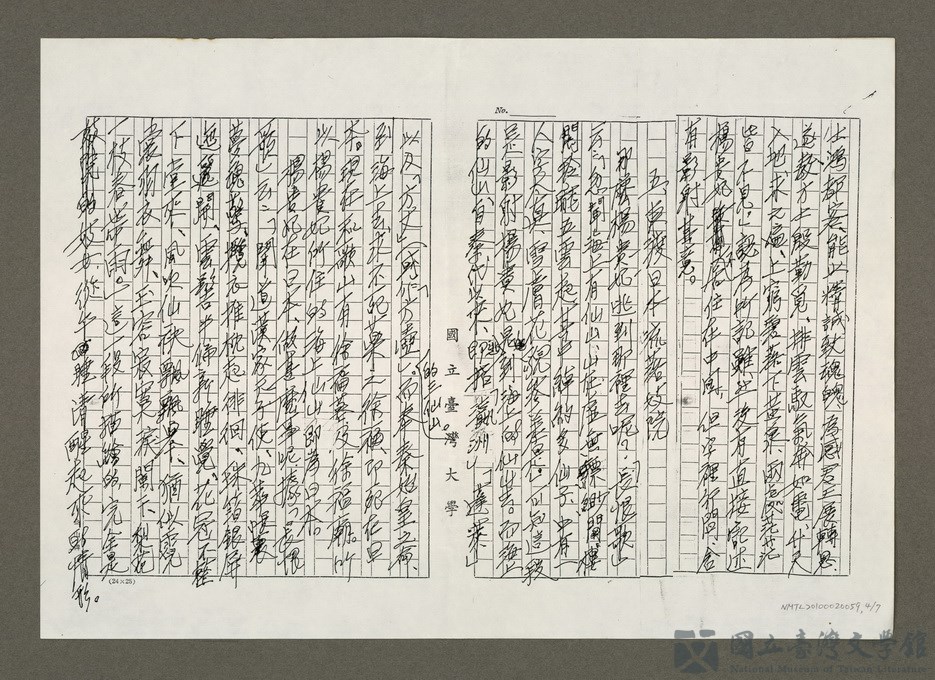 No.
士鴻都客、能以精誠致魂魄、為感君王展轉思
遂教方士殷勤覓、排雲馭氣奔如電、升天
入地求之遍、上窮碧落下黃泉、兩處茫茫
皆不見」、
楊貴妃 居住在中國、但字裡行間、含
有影射其意。
五、東渡日本流落妓院
那麼楊貴妃逃到那裡去呢？「長恨歌」
云：「忽聞海上有仙山、山在虛無縹緲間、樓
閣玲瓏五雲起、其中綽約多仙子、中有一
人字太真、雪膚花貌參差是」、這段
是影射楊貴妃逃到海上的仙山去。而海上
的仙山、自秦代以來、即指「瀛洲」「蓬萊」
國立臺灣大學
以及「方丈」 的三仙山。而秦始皇立
到海上去求不死藥之徐福、即死在日
本。現在和歌山有徐福墓及徐福廟。所
以楊貴妃所住的海上仙山即為日本。
楊貴妃在日本、做甚麼事呢？據「長恨
歌」云：「聞道漢家天子使、九華帳裏
夢魂驚、攬衣推枕起徘徊、珠箔銀屏
邐迤開、雲鬢半偏新睡覺、花冠不整
下堂來、風吹仙袂飄飄舉、猶似霓
裳羽衣舞、玉容寂寞淚闌干、梨花
一枝春帶雨。」這一段所描繪的、完全是
妓院的妓女、從午睡清醒起來的情形。
(24×25)
NMTL20100020059, 4/7
國立臺灣文學館
National Museum of Taiwan Literature